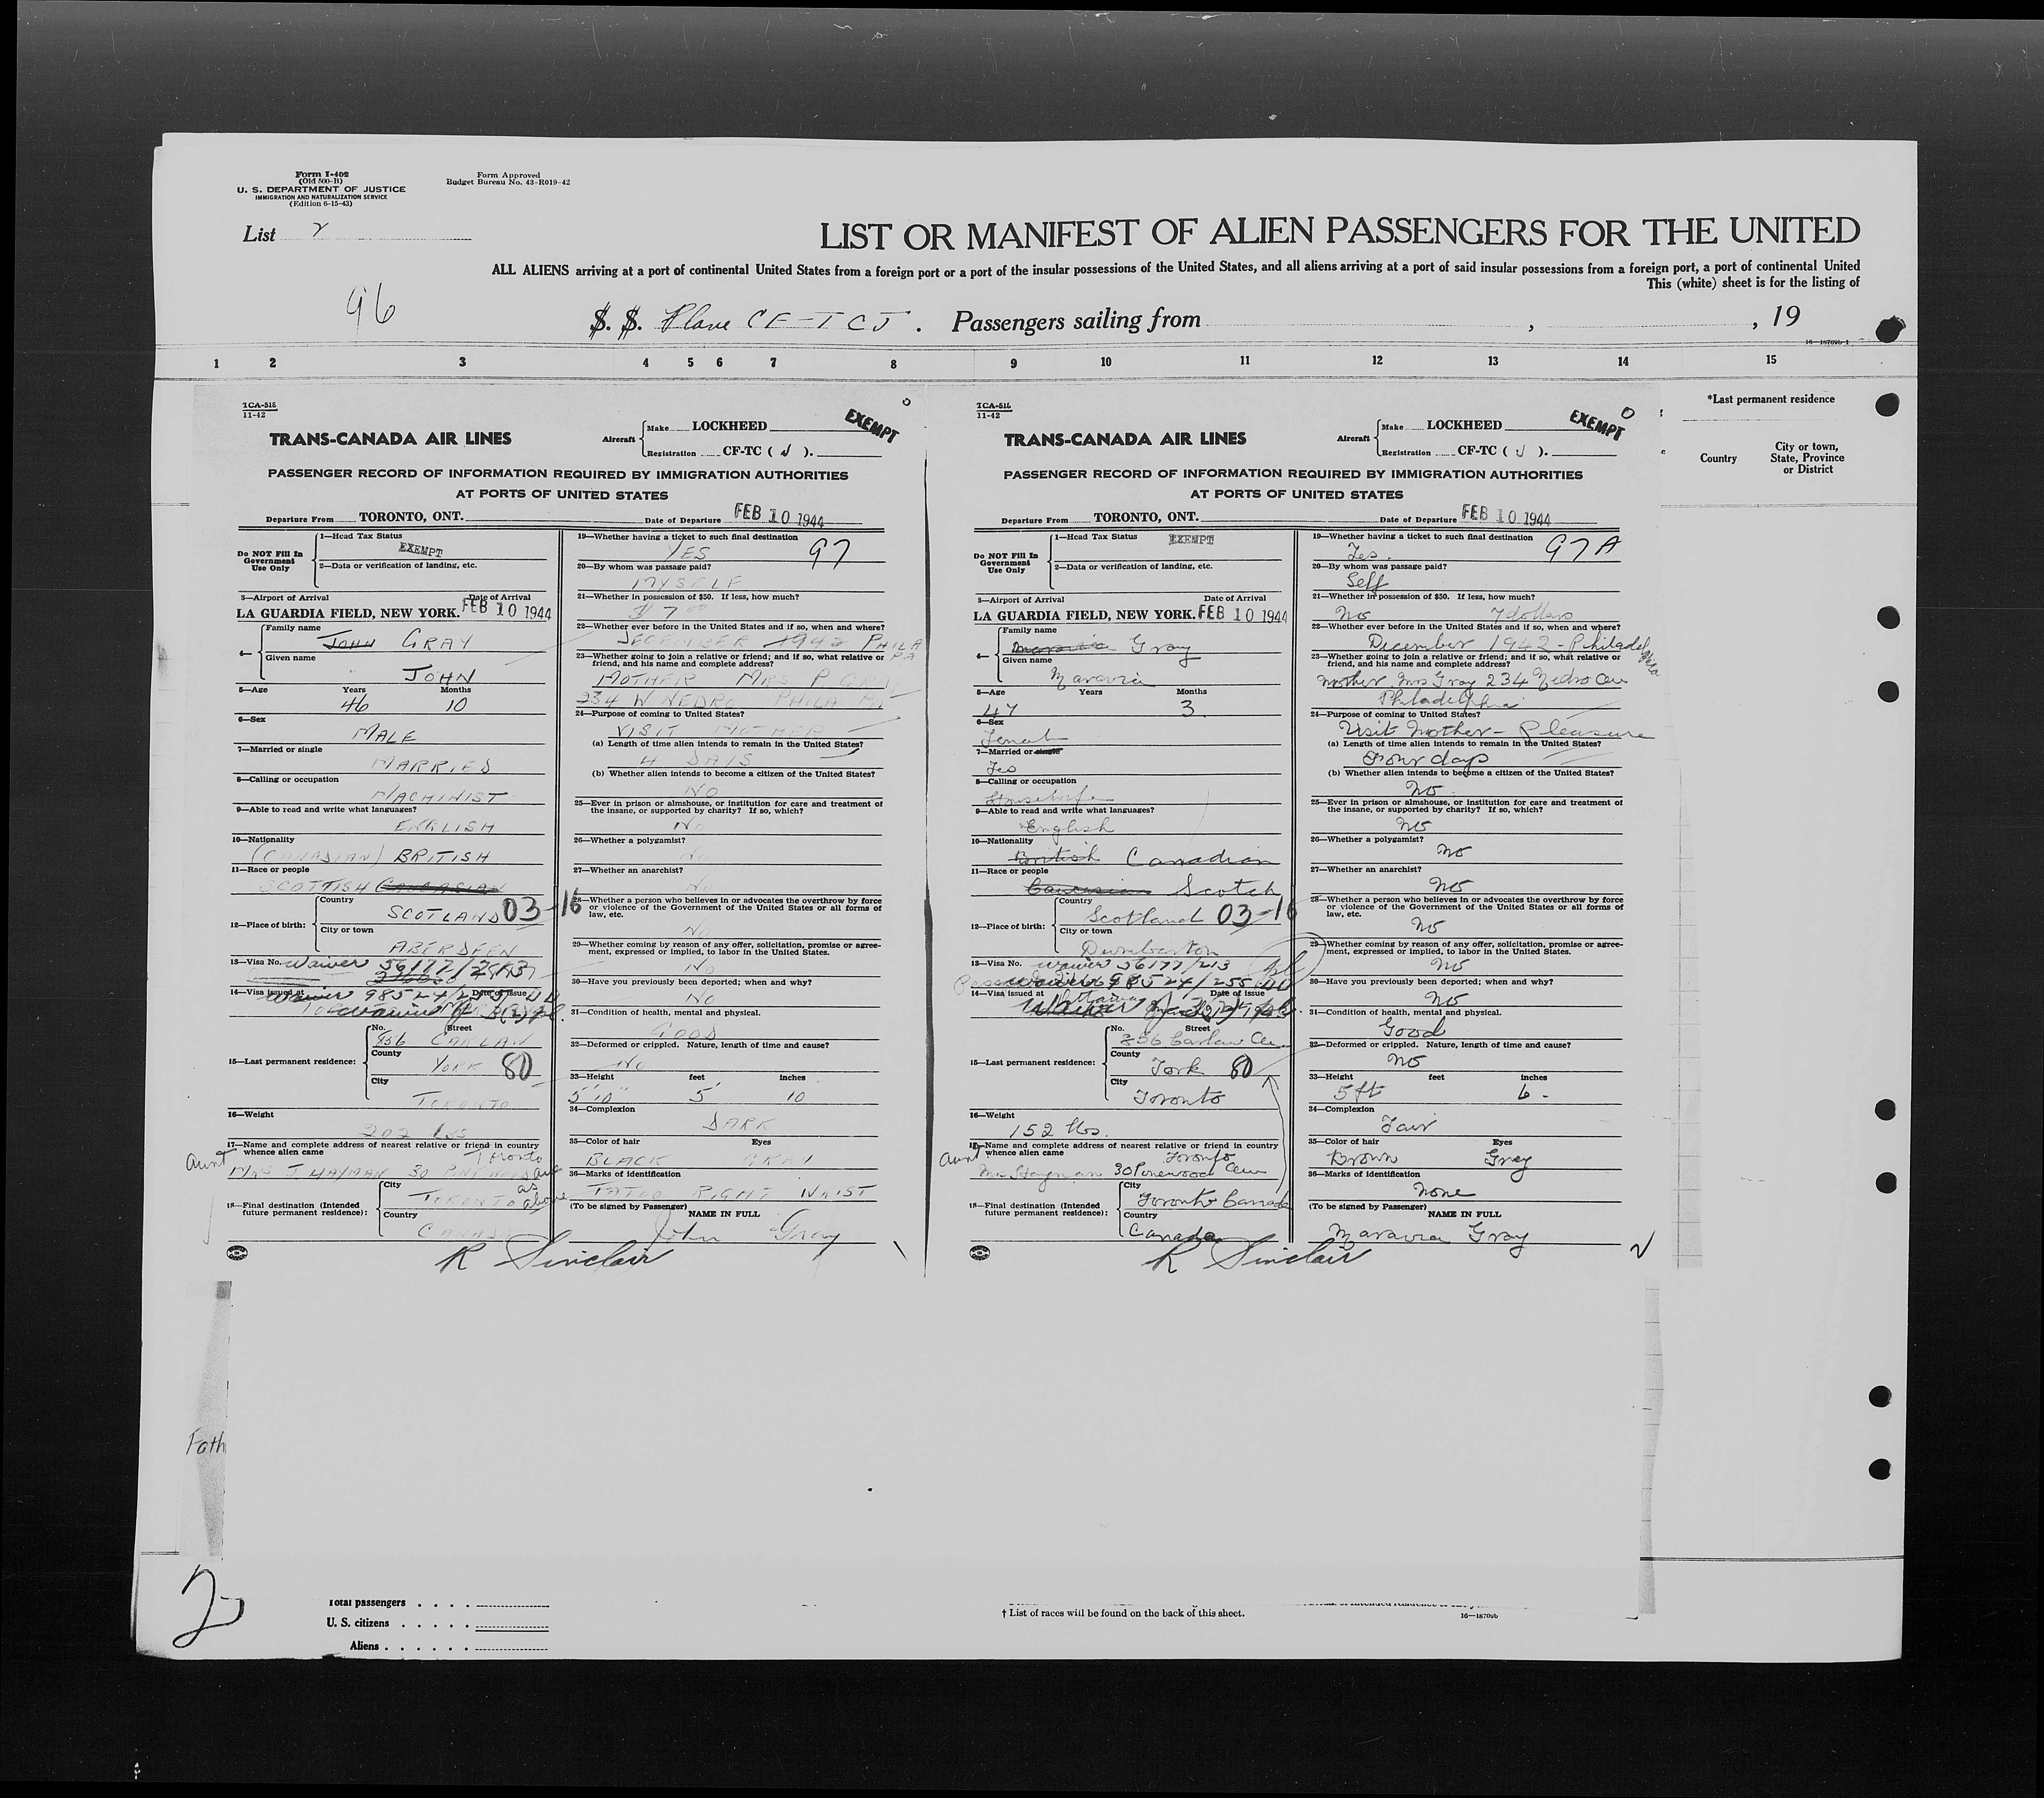 Form I-402
(Old 500-B)
U. S. DEPARTMENT OF JUSTICE
IMMIGRATION AND NATURALIZATION SERVICE
(Edition 6-15-43)
Form Approved
Budget Bureau No. 43-R019-42
List 2
LIST OR MANIFEST OF ALIEN PASSENGERS FOR THE UNITED
ALL ALIENS arriving at a port of continental United States from a foreign port or a port of the insular possessions of the United States, and all aliens arriving at a port of said insular possessions from a foreign port, a port of continental United
This (white) sheet is for the listing of
96
S. S. Plane CF-TCJ. Passengers sailing from , , 19
16-18709b-1
1 2 3 4 5 6 7 8 9 10 11 12 13 14 15
*Last permanent residence
Country
City or town, State, Province or District
TCA-518
11-42
EXEMPT
TRANS-CANADA AIR LINES
Aircraft Make LOCKHEED
Registration CF-TC ( J ).
PASSENGER RECORD OF INFORMATION REQUIRED BY IMMIGRATION AUTHORITIES
AT PORTS OF UNITED STATES
Departure From TORONTO, ONT. Date of Departure FEB 10 1944
Do NOT Fill In Government Use Only
1—Head Tax Status EXEMPT
2—Data or verification of landing, etc.
3—Airport of Arrival Date of Arrival
LA GUARDIA FIELD, NEW YORK. FEB 10 1944
4— Family name JOHN GRAY
Given name JOHN
5—Age Years Months
46 10
6—Sex
MALE
7—Married or single
MARRIED
8—Calling or occupation
MACHINIST
9—Able to read and write what languages?
ENGLISH
10—Nationality
(CANADIAN) BRITISH
11—Race or people
SCOTTISH CAUCASIAN
12—Place of birth: Country SCOTLAND 03-16
City or town ABERDEEN
13—Visa No. Waiver 56177/213
14—Visa issued at Date of issue
Waiver 98524/255
15—Last permanent residence: No. Street
856 CARLAW
County YORK 80
City TORONTO
16—Weight
202 lbs
17—Name and complete address of nearest relative or friend in country whence alien came
Toronto
Aunt MRS J HAYMAN 30 Ave
18—Final destination (Intended future permanent residence): City TORONTO as above
Country CANADA
19—Whether having a ticket to such final destination
YES 97
20—By whom was passage paid?
MYSELF
21—Whether in possession of $50. If less, how much?
$ 7 00
22—Whether ever before in the United States and if so, when and where?
DECEMBER 1942 PHILA PA
23—Whether going to join a relative or friend; and if so, what relative or friend, and his name and complete address?
MOTHER MRS P GRAY
234 W NEDRO PHILA PA
24—Purpose of coming to United States?
VISIT MOTHER
(a) Length of time alien intends to remain in the United States?
4 DAYS
(b) Whether alien intends to become a citizen of the United States?
NO
25—Ever in prison or almshouse, or institution for care and treatment of the insane, or supported by charity? If so, which?
No
26—Whether a polygamist?
No
27—Whether an anarchist?
No
28—Whether a person who believes in or advocates the overthrow by force or violence of the Government of the United States or all forms of law, etc.
No
29—Whether coming by reason of any offer, solicitation, promise or agreement, expressed or implied, to labor in the United States.
No
30—Have you previously been deported; when and why?
No
31—Condition of health, mental and physical.
GOOD
32—Deformed or crippled. Nature, length of time and cause?
No
33—Height feet inches
5'10" 5' 10
34—Complexion
DARK
35—Color of hair Eyes
BLACK GRAY
36—Marks of identification
TATOO RIGHT WRIST
(To be signed by Passenger)
NAME IN FULL
John Gray
R Sinclair
TCA-518
11-42
EXEMPT
TRANS-CANADA AIR LINES
Aircraft Make LOCKHEED
Registration CF-TC ( J ).
PASSENGER RECORD OF INFORMATION REQUIRED BY IMMIGRATION AUTHORITIES
AT PORTS OF UNITED STATES
Departure From TORONTO, ONT. Date of Departure FEB 10 1944
Do NOT Fill In Government Use Only
1—Head Tax Status EXEMPT
2—Data or verification of landing, etc.
3—Airport of Arrival Date of Arrival
LA GUARDIA FIELD, NEW YORK. FEB 10 1944
4— Family name Gray
Given name
5—Age Years Months
47 3
6—Sex
Female
7—Married or single
Yes
8—Calling or occupation
Housewife
9—Able to read and write what languages?
English
10—Nationality
British Canadian
11—Race or people
Caucasian Scotch
12—Place of birth: Country Scotland 03-16
City or town Dumbarton
13—Visa No. Waiver 56177/213
98524/255
14—Visa issued at Date of issue
15—Last permanent residence: No. Street
856 Carlaw Ave
County York 80
City Toronto
16—Weight
152 lbs.
17—Name and complete address of nearest relative or friend in country whence alien came
Toronto
Aunt Mrs Hayman 30 Pinewood Ave
18—Final destination (Intended future permanent residence): City Toronto Canada
Country Canada
19—Whether having a ticket to such final destination
Yes. 97A
20—By whom was passage paid?
Self
21—Whether in possession of $50. If less, how much?
No 7 dollars
22—Whether ever before in the United States and if so, when and where?
December 1942 - Philadelphia
23—Whether going to join a relative or friend; and if so, what relative or friend, and his name and complete address?
Mother Mrs Gray 234 Nedro Ave
Philadelphia
24—Purpose of coming to United States?
Visit Mother - Pleasure
(a) Length of time alien intends to remain in the United States?
Four days
(b) Whether alien intends to become a citizen of the United States?
No.
25—Ever in prison or almshouse, or institution for care and treatment of the insane, or supported by charity? If so, which?
No
26—Whether a polygamist?
No
27—Whether an anarchist?
No
28—Whether a person who believes in or advocates the overthrow by force or violence of the Government of the United States or all forms of law, etc.
No
29—Whether coming by reason of any offer, solicitation, promise or agreement, expressed or implied, to labor in the United States.
No
30—Have you previously been deported; when and why?
No
31—Condition of health, mental and physical.
Good
32—Deformed or crippled. Nature, length of time and cause?
No
33—Height feet inches
5 ft 6.
34—Complexion
Fair
35—Color of hair Eyes
Brown Grey
36—Marks of identification
None
(To be signed by Passenger)
NAME IN FULL
Gray
R Sinclair
2
Fath
2
Total passengers
U. S. citizens
Aliens
† List of races will be found on the back of this sheet.
16—18709b